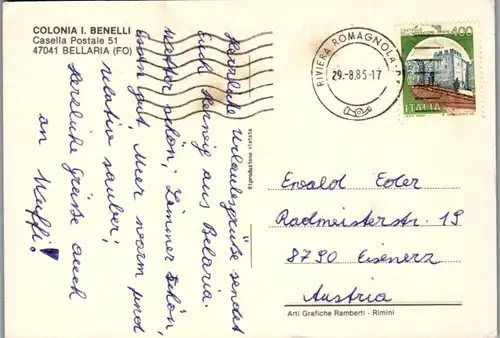 COLONIA I. BENELLI
Casella Postale 51
47041 BELLARIA (FO)
Herzliche Urlaubsgrüße sendet
Euch Herwig aus Belaria.
Wetter schön, Zimmer schön,
Essen gut, Meer warm und
relativ sauber;
Herzliche Grüße auch
an Steffi!
Riproduzione vietata
RIVIERA ROMAGNOLA
29.-8.85-17
400
ITALIA
Ewald Eder
Radmeisterstr. 19
8790 Eisenerz
Austria
Arti Grafiche Ramberti - Rimini